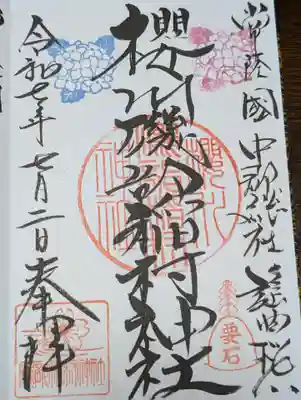 常陸國中郡総社 謡曲桜川
櫻川磯部稲村神社
要石
令和七年七月二日奉拝